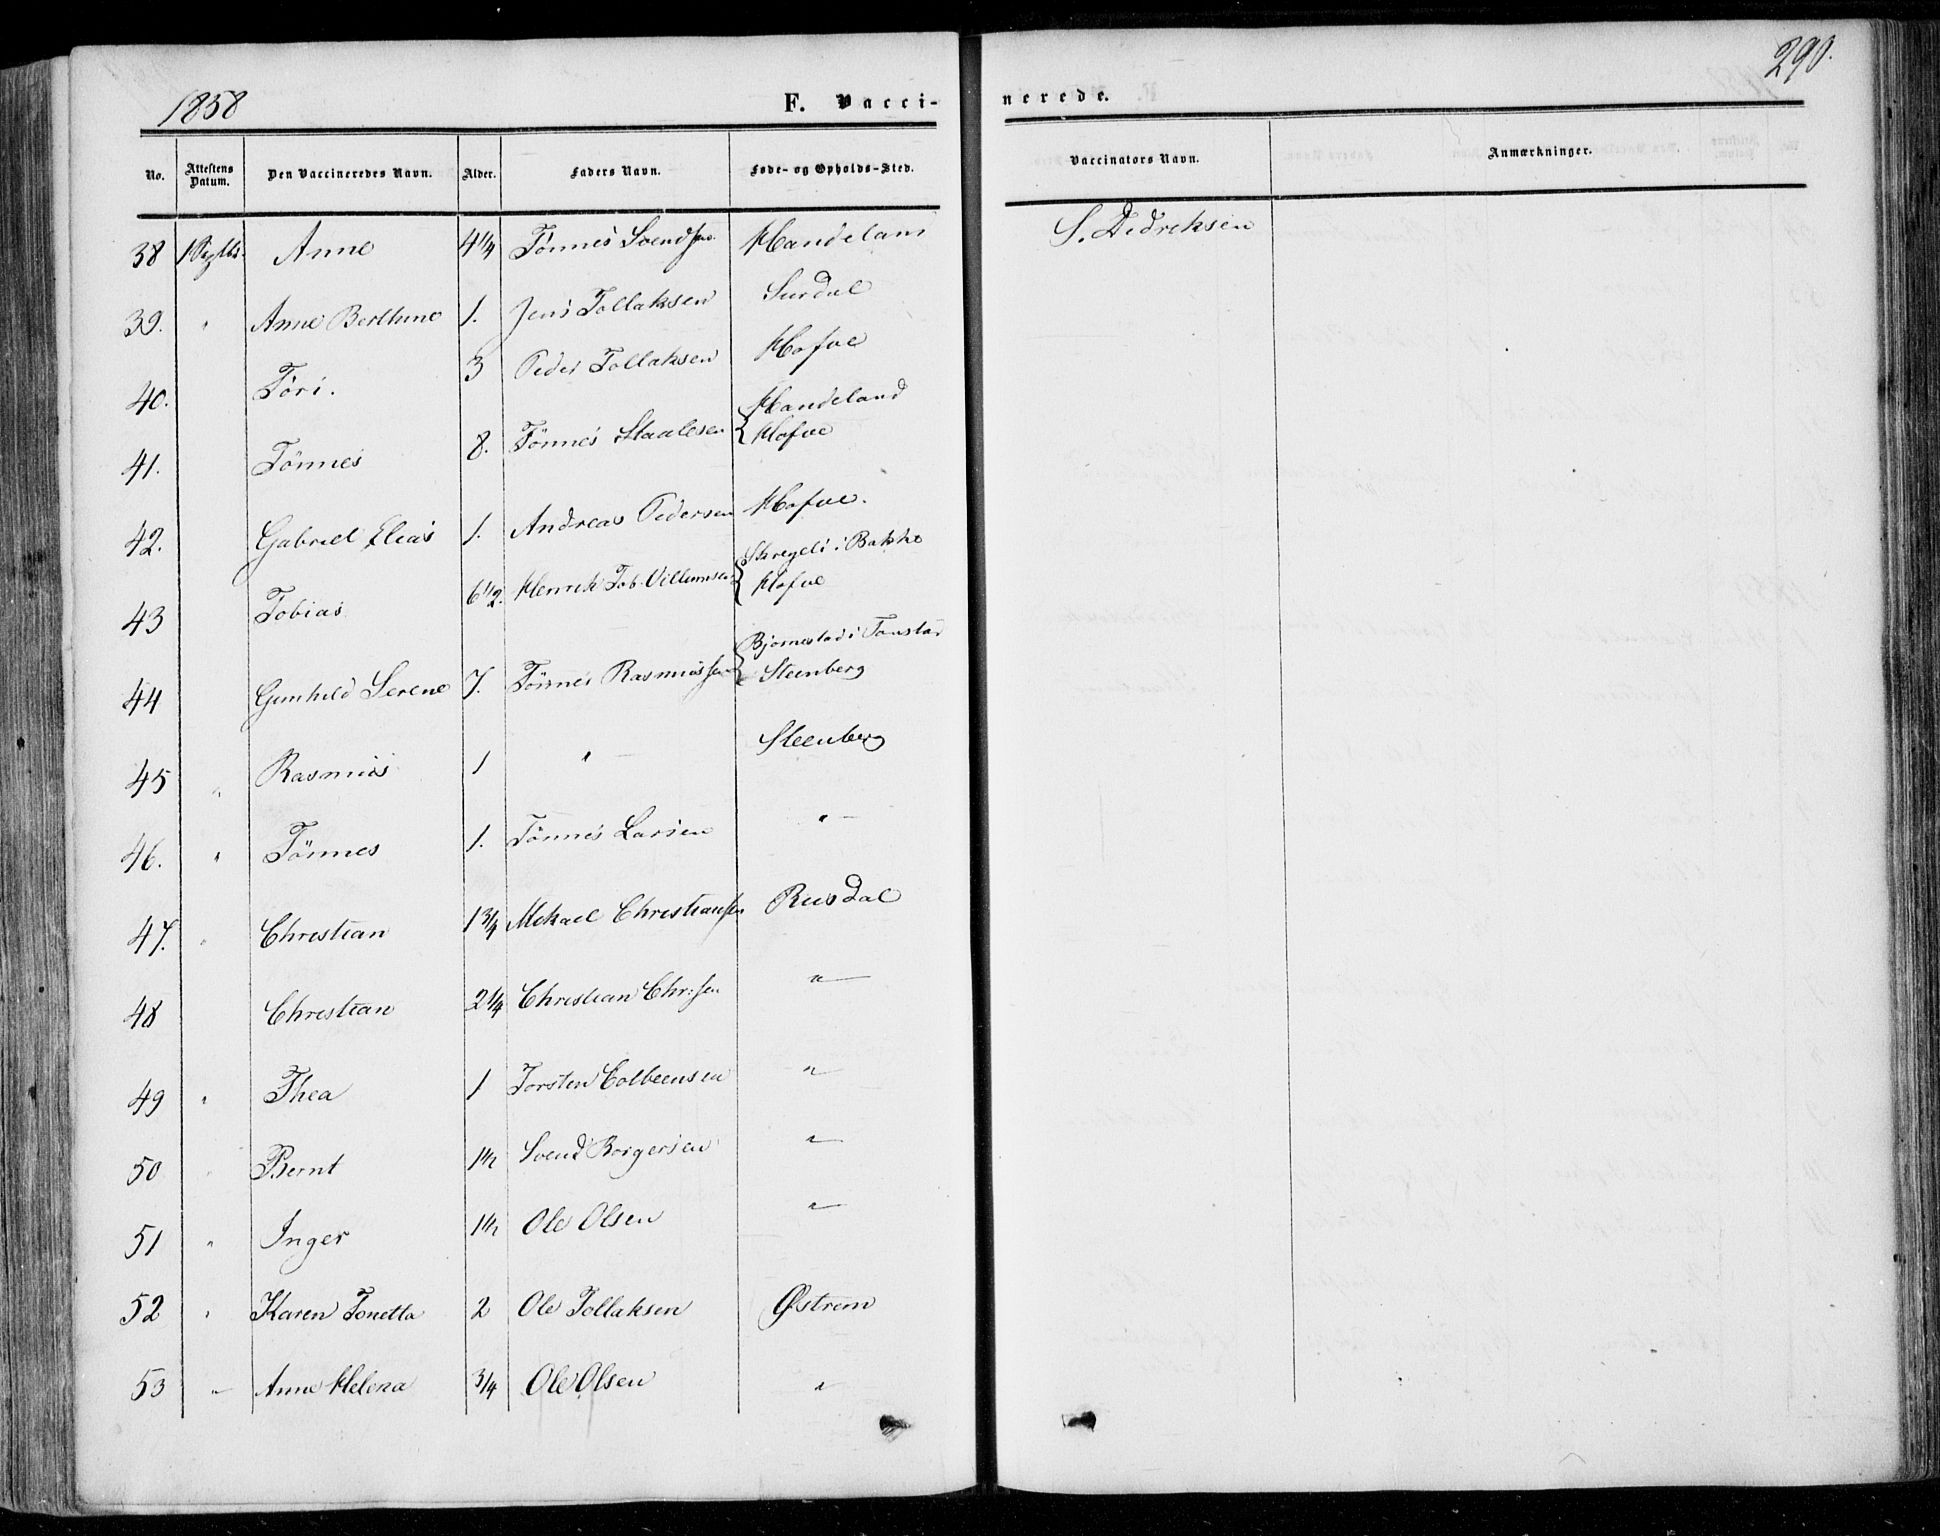 1858 F. Vacci- nerede. 290.
No. Attestens Datum. Den Vaccineredes Navn. Alder. Faders Navn. Føde- og Opholds-Sted. Vaccinators Navn. Anmærkninger.
38 1 Septbr. Anne 4 1/4 Tönnes Svendsen Handeland S. Didreksen
39. " Anne Berthine 1. Jens Tollaksen Surdal
40. Töri. 3 Peder Tollaksen Hofve
41. Tönnes 8. Tönnes Staalesen { Handeland
Hofve
42. Gabriel Elias 1. Andreas Pedersen Hofve.
43 Tobias 6 1/2. Henrik Tob. Villumsen { Skregeli i Bakke
Hofve
44 Gunhild Serene 7. Tönnes Rasmussen { Bjornestad i Tonstad
Steenberg
45 " Rasmus 1 " Steenberg
46. " Tönnes 1. Tönnes Larsen "
47. " Christian 1 3/4 Mikael Christiansen Rusdal
48 Christian 2 1/4 Christian Chrsen "
49 " Thea 1 Torsten Colbeensen "
50 " Bernt 1 1/2 Svend Borgersen "
51 " Inger 1 1/2 Ole Olsen "
52 " Karen Tonetta 2 Ole Tollaksen Østrem
53 " Anne Helena 3/4 Ole Olsen "